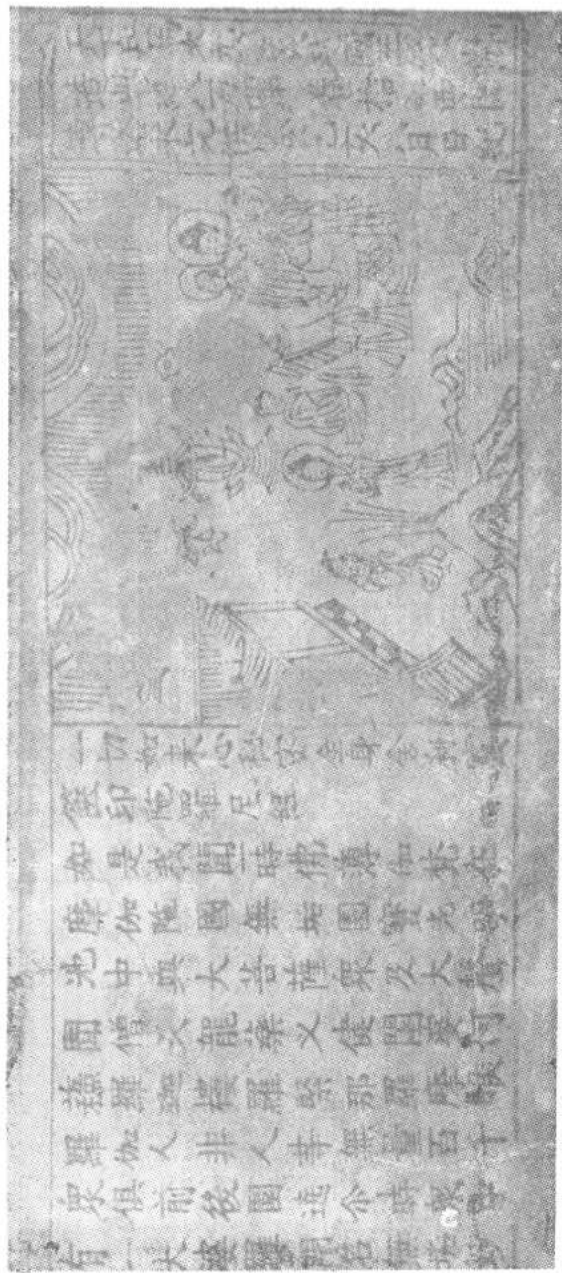 天下兵馬大元帥吳越國王錢俶
造此經八万四千卷捨入西關
塼塔永充供養乙亥八月日紀
一切如來心秘密全身舍利寶
篋印陀羅尼經
如是我聞一時佛薄伽梵在
摩伽陀國無垢園寶光明
池中與大菩薩衆及大聲
聞僧天龍藥叉健闥婆阿
蘓羅迦樓羅緊那羅摩睺
羅伽人非人等無量百千
衆俱前後圍遶尒時衆中
有一大婆羅門名無垢妙